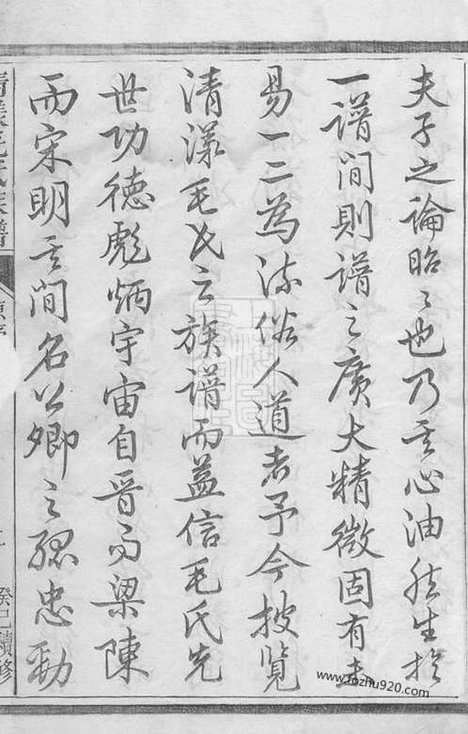 夫子之論昭〻也乃其心油然生於
一譜間則譜之廣大精微固有未
易一二為流俗人道者予今披覽
清漾毛氏之族譜而益信毛氏先
世功德彪炳宇宙自晉而梁陳
而宋明其間名公卿之孤忠勁
清漾毛氏族譜
癸巳續修
www.fozhu920.com